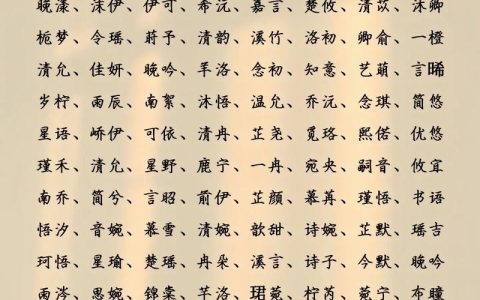 晚漾、沫伊、伊可、希沅、嘉言、楚攸、清苡、沐卿
栀梦、令瑶、莳予、清韵、溪竹、洛初、卿俞、一橙
清允、佳妍、晚吟、芊洛、念初、知意、艺萌、言晞
岁柠、雨辰、南絮、沐悟、温允、乔沅、念琪、简悠
星语、峤伊、可依、清冉、芷尧、觅珞、熙偌、优悠
瑾禾、清允、星野、鹿宁、一冉、宛央、嗣音、攸宜
南乔、简兮、言昭、前伊、芷颜、慕苒、瑾悟、书语
悟汐、音婉、慕雪、清婉、歆甜、诗婉、芷默、瑶吉
珂悟、星瑜、楚瑶、冉朵、溪言、诗子、今默、晚吟
雨涔、思婉、锦棠、芊洛、珺菀、柠芮、菀宁、布瞳